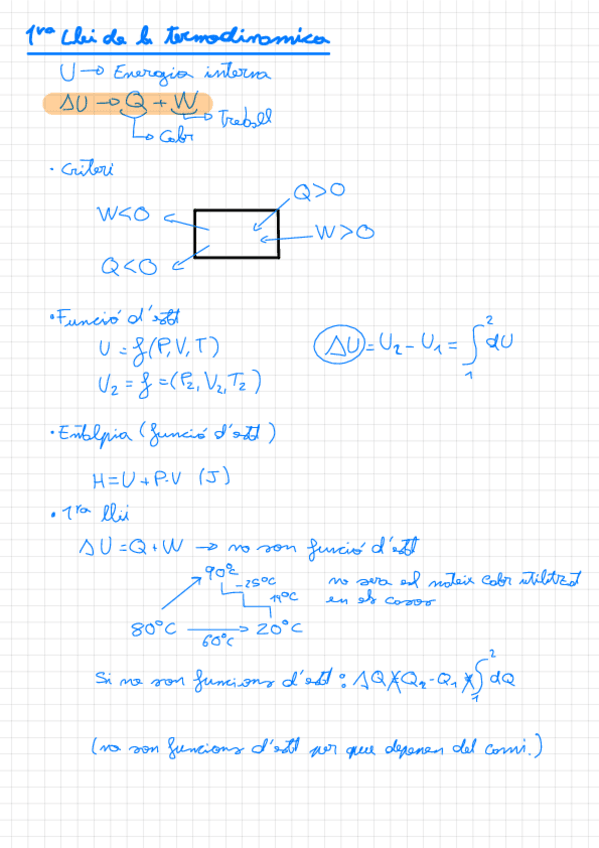 1ra Llei de la termodinamica
U → Energia interna
ΔU → Q + W
→ Treball
→ Calor
· criteri
Q>0
W<0
W>0
Q<0
· Funció d'estat
U = f(P,V,T)
U2 = f = (P2, V2, T2)
ΔU = U2 - U1 = ∫₁² dU
· Entalpia (funció d'estat)
H = U + P·V (J)
· 1ra llei
ΔU = Q + W → no son funció d'estat
90°C
-25°C
19°C
80°C → 20°C
60°C
no sera el mateix calor utilitzat
en els casos
Si no son funcions d'estat : ΔQ ≠ Q2 - Q1 ≠ ∫₁² dQ
(no son funcions d'estat per que depenen del camí.)